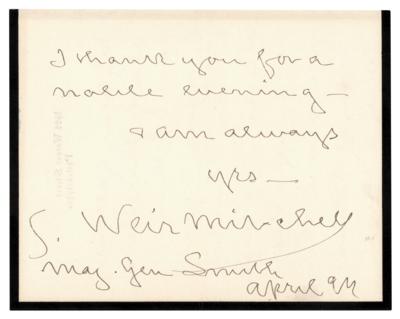 I thank you for a
noble evening —
I am always
yrs —
S. Weir Mitchell
Maj. Gen Smith
April 9th